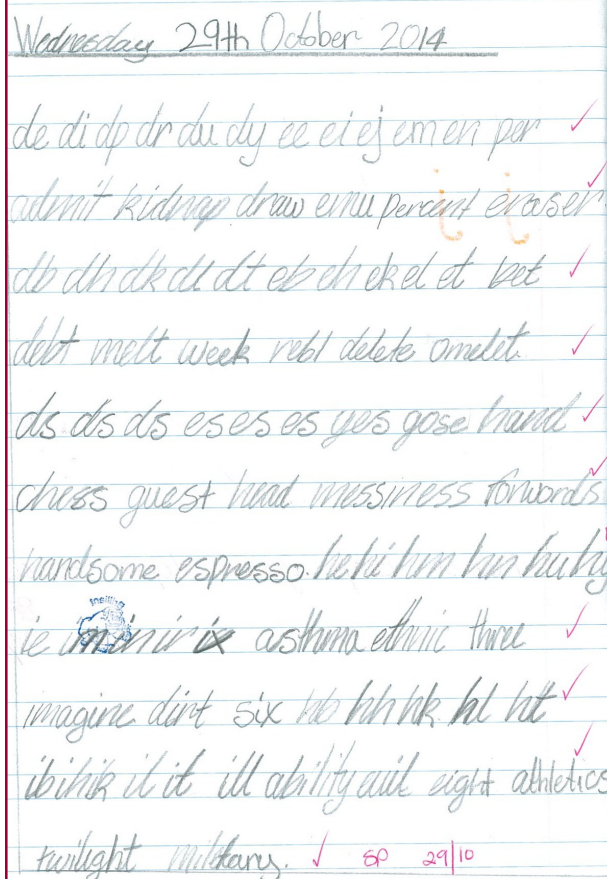 Wednesday 29th October 2014
de di dp dr du dy ee ei ej em en per
admit kidnap draw emu percent eraser
db dh dk dl dt eb eh ek el et bet
debt melt week rebl delete omelet.
ds ds ds es es es yes gose hand
chess guest head messiness forwards
handsome espresso. he hi hm hn hu hy
ie im in ir ix asthma ethnic three
imagine dirt six hb hh hk hl ht
ib ih ik il it ill ability evil eight athletics
twilight military. SP 29/10